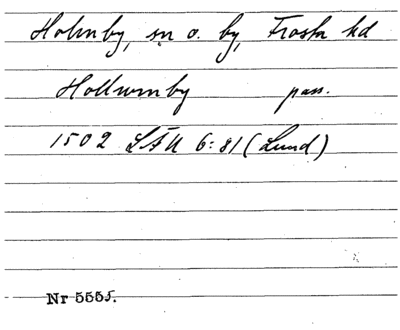 Holmby, sn o. by, Frosta hd
Hollumby pass.
1502 LÄU 6:81 (Lund)
Nr 5551.